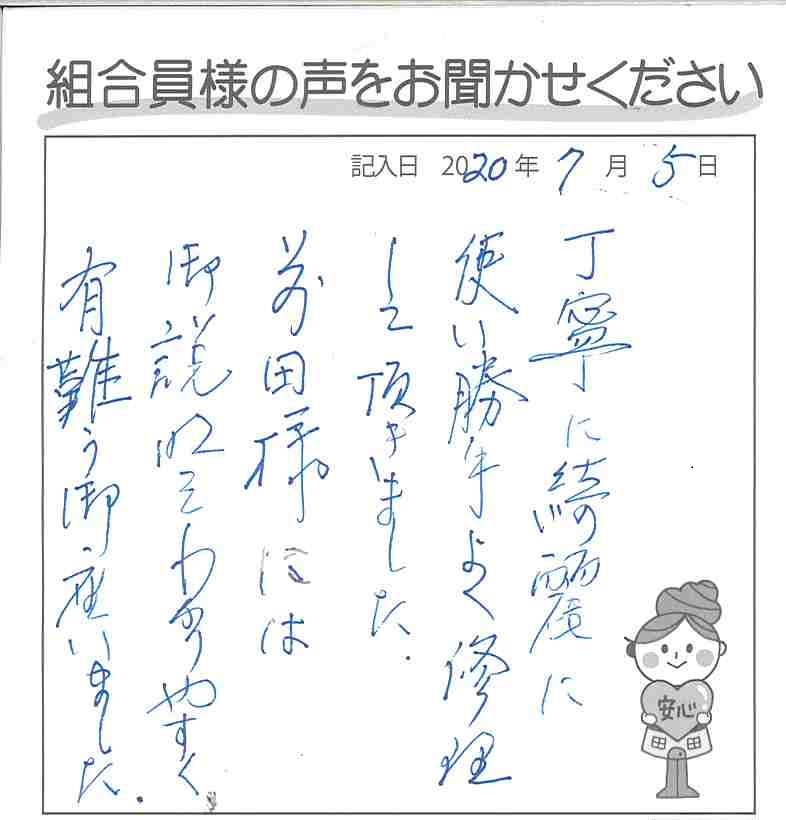 組合員様の声をお聞かせください
記入日 2020年 7月 5日
丁寧に綺麗に
使い勝手よく修理
して頂きました.
前田様には
御説明もわかりやすく
有難う御座いました.
安心